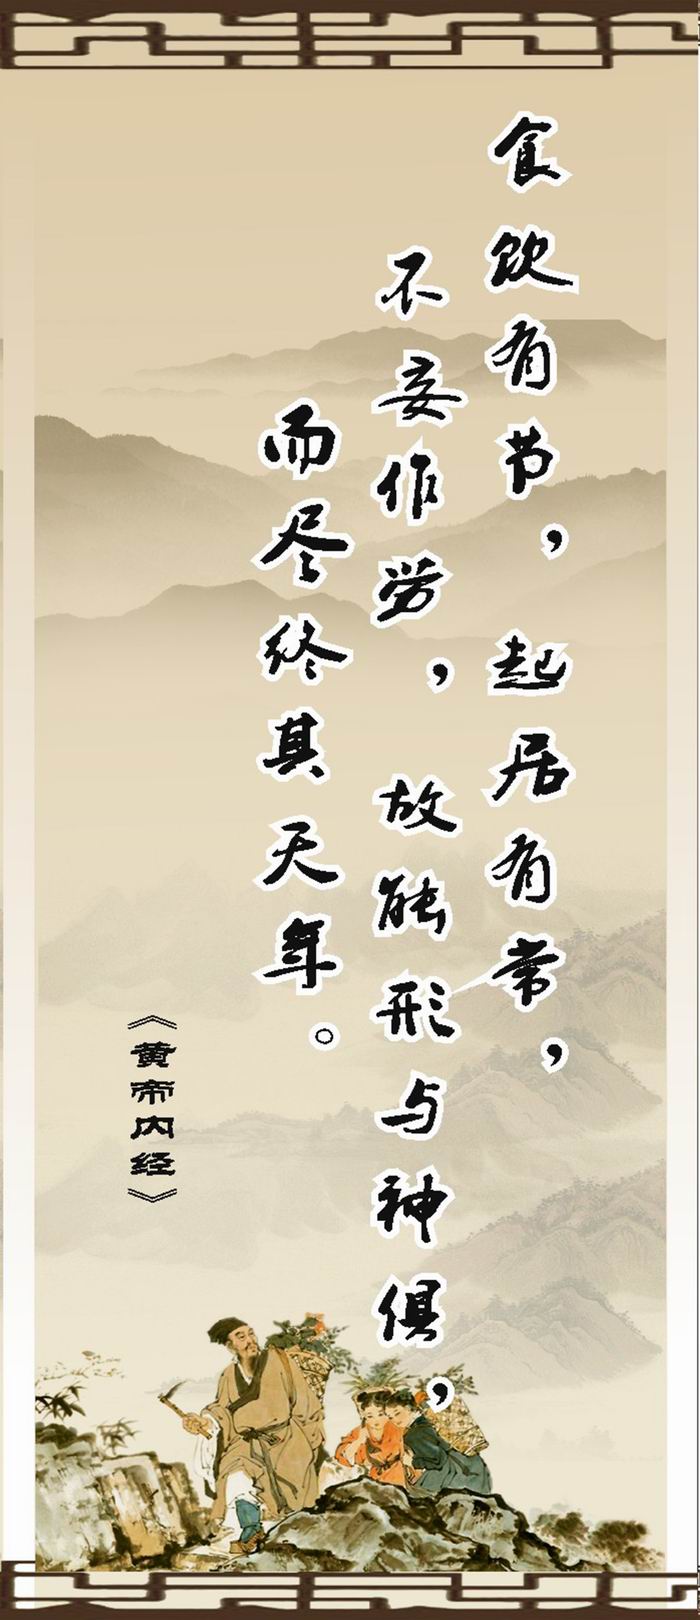 食饮有节，起居有常，
不妄作劳，故能形与神俱，
而尽终其天年。
《黄帝内经》